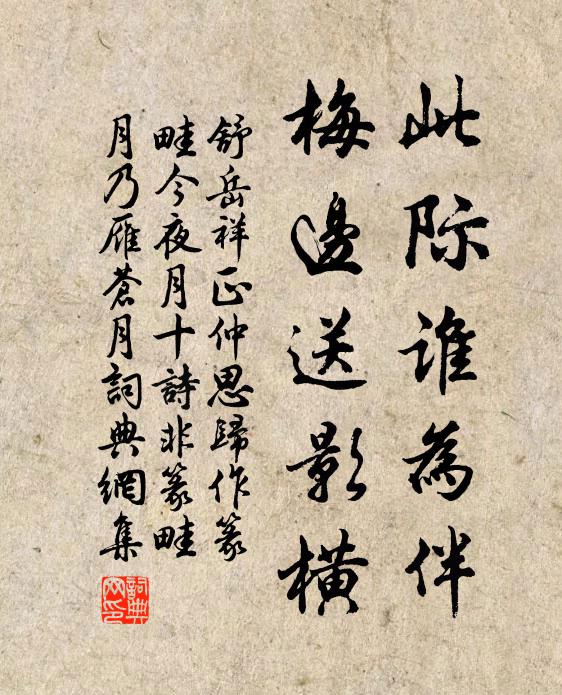 此际谁為伴
梅邊送影橫
舒岳祥正仲思歸作篆
畦今夜月十詩非篆畦
月乃雁蒼月詞典網集
詞典
网印